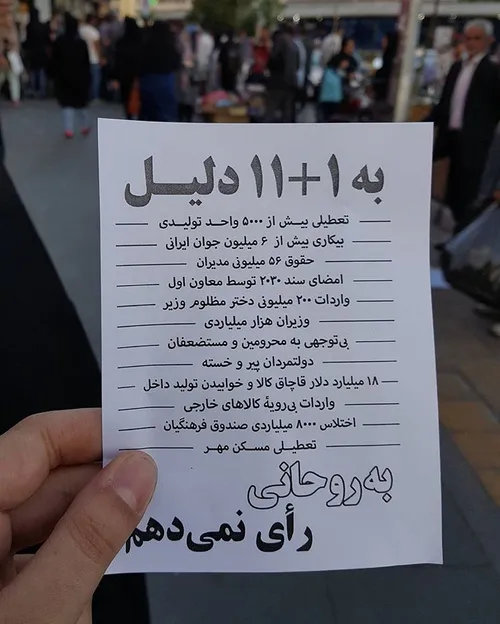 به ۱+۱۱ دلیل
تعطیلی بیش از ۵۰۰۰ واحد تولیدی
بیکاری بیش از ۶ میلیون جوان ایرانی
حقوق ۵۶ میلیونی مدیران
امضای سند ۲۰۳۰ توسط معاون اول
واردات ۲۰۰ میلیونی دختر مظلوم وزیر
وزیران هزار میلیاردی
بی‌توجهی به محرومین و مستضعفان
دولتمردان پیر و خسته
۱۸ میلیارد دلار قاچاق کالا و خوابیدن تولید داخل
واردات بی‌رویهٔ کالاهای خارجی
اختلاس ۸۰۰۰ میلیاردی صندوق فرهنگیان
تعطیلی مسکن مهر
به روحانی
رأی نمی‌دهم